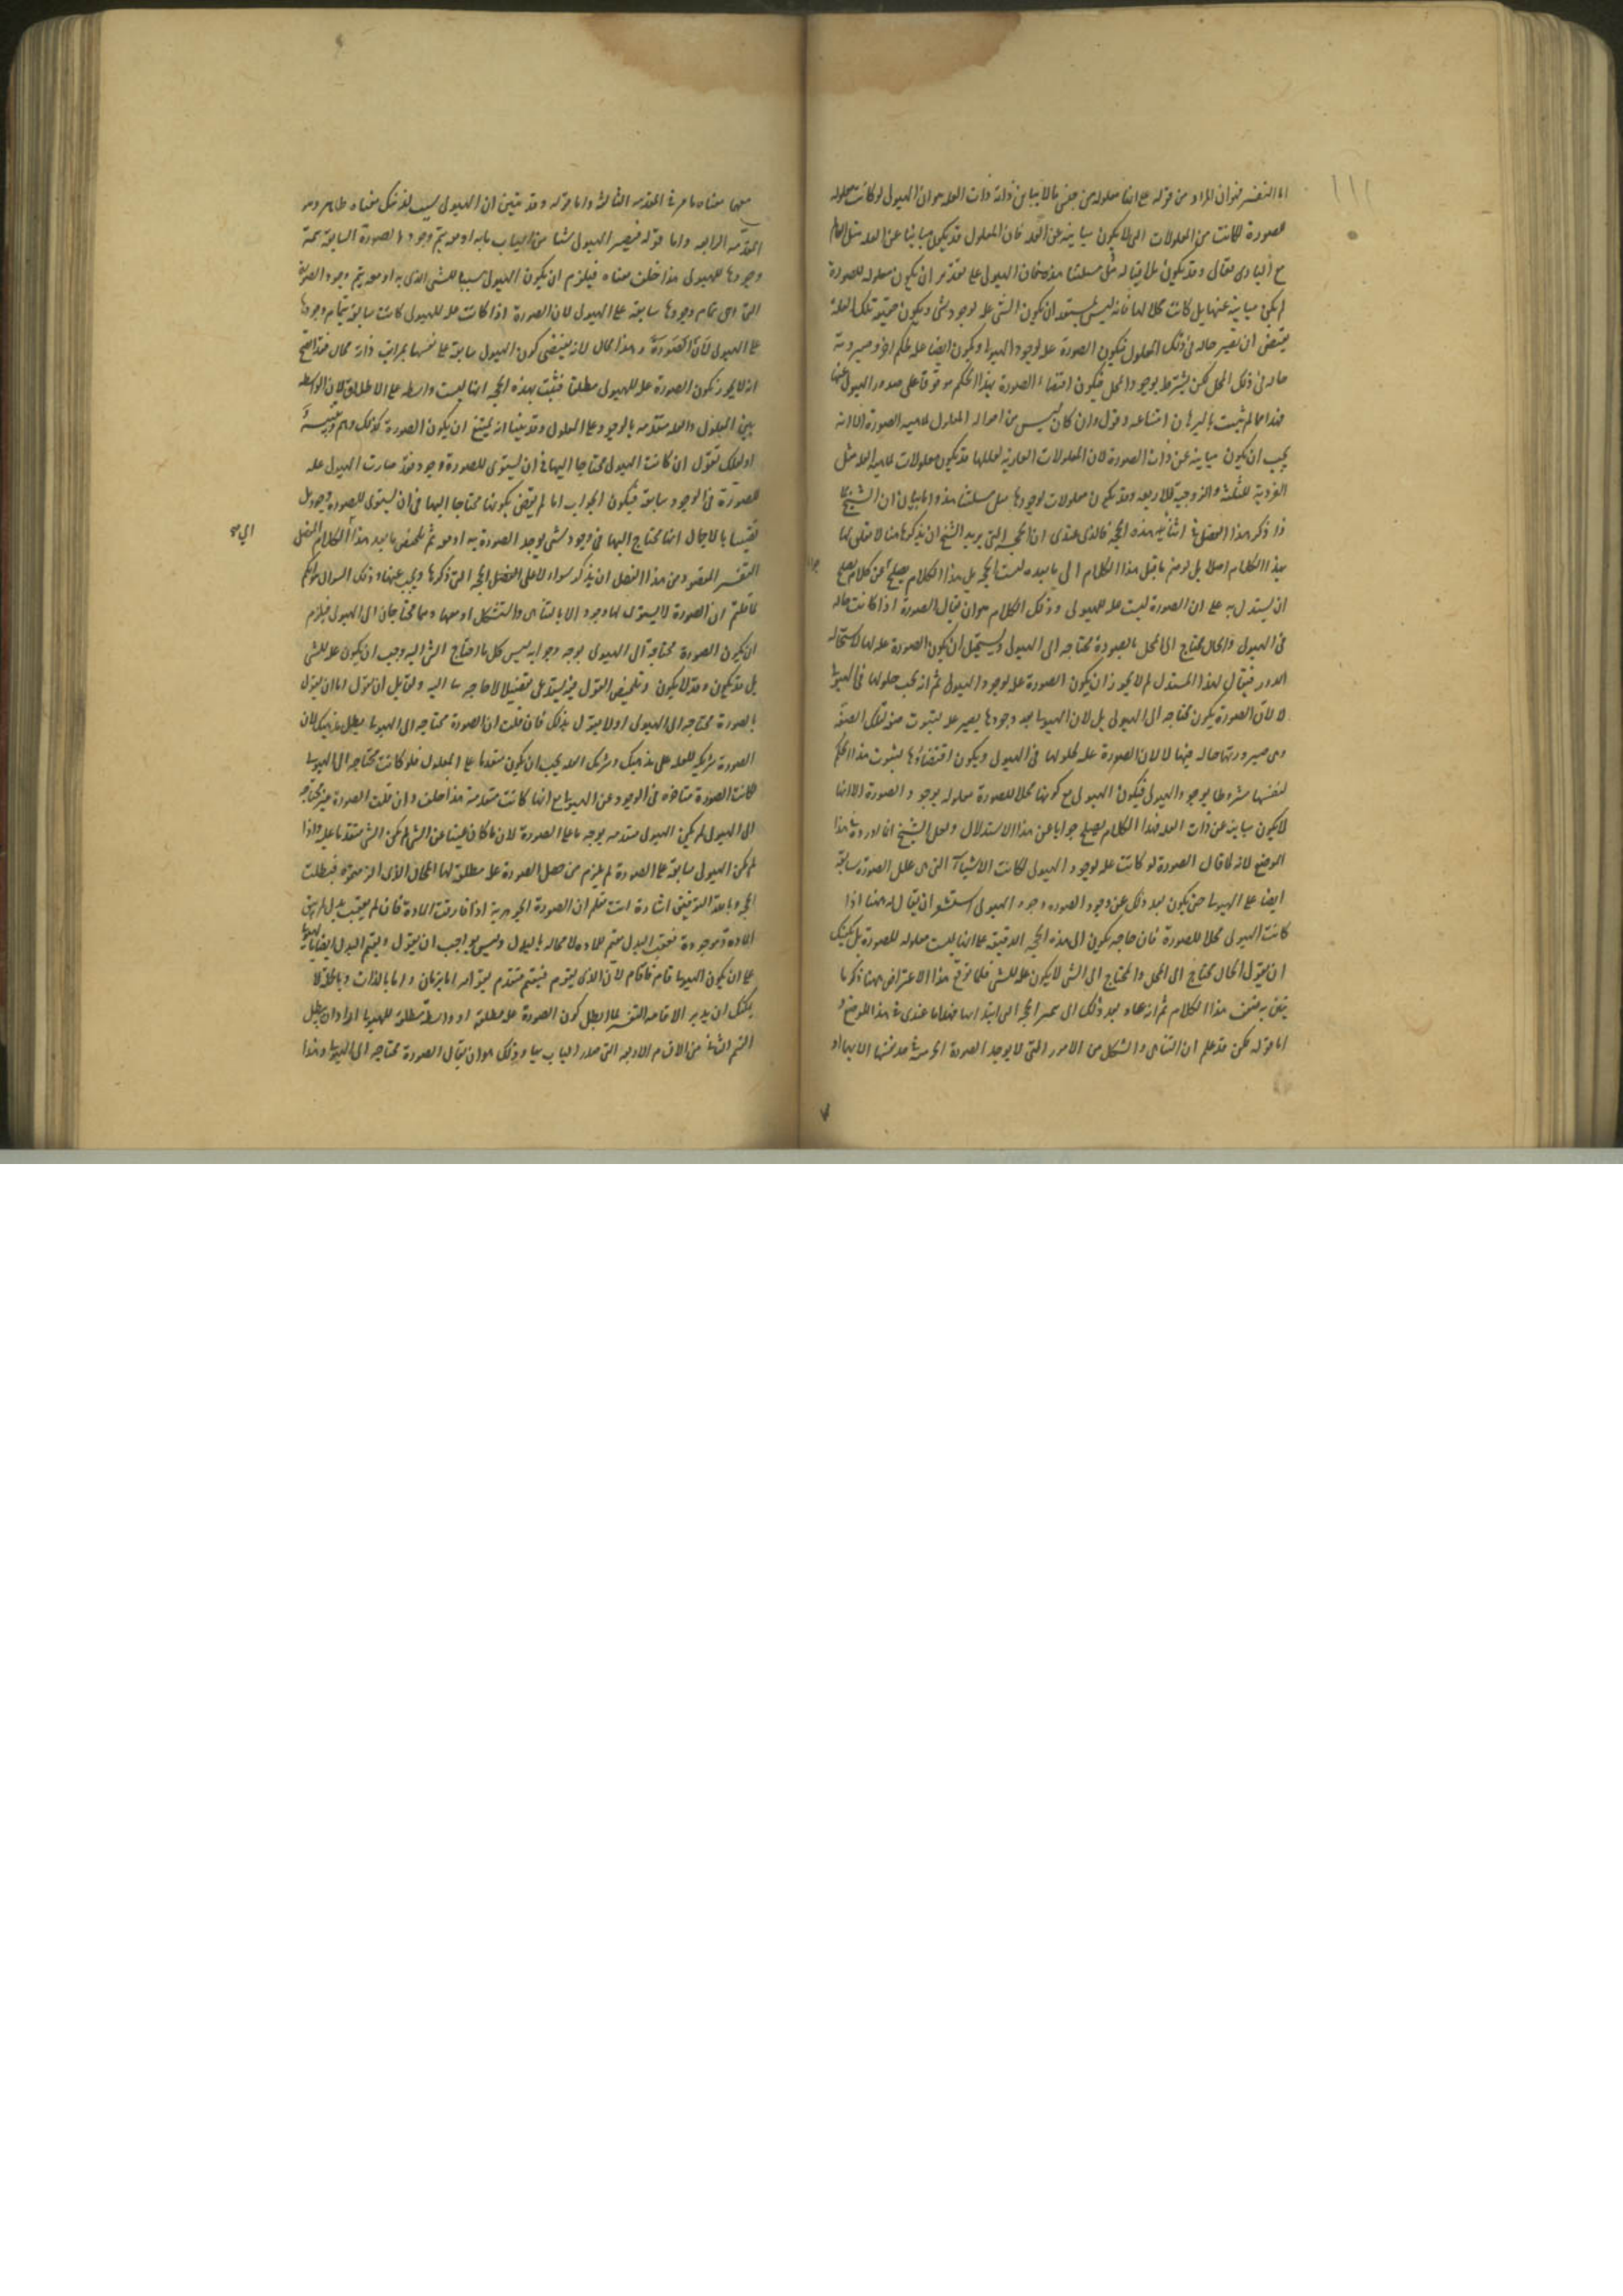 اما التفسير فهو ان المراد من قوله على انها معلولة من جنس ما لا يباين ذاته ذات العلة هو ان الهيولى لو كانت معلوله
للصورة لكانت من المعلولات التى لا يكون مباينه عن العلة فان المعلول قد يكون مباينا عن العلة مثل العالم
مع البارى تعالى وقد يكون ملاقيا له مثل مسئلتنا هذه فان الهيولى على تقدير ان يكون معلوله للصورة
لم يكن مباينة عنها بل كانت محلا لها فانه ليس بمستبعد ان يكون الشى علة لوجود شى ويكون حقيقة تلك العلة
يقتضى ان يصير حاله فى ذلك المعلول فيكون الصورة علة لوجود الهيولى ويكون ايضا علة لحكم اخر وصيرورته
حاله فى ذلك المحل لكن بشرط وجود المحل فيكون اقتضاء الصورة بهذا الحكم موقوفا على صدور الهيولى عنها
فهذا مما لم يثبت بالبرهان امتناعه وقوله وان كان ليس من احواله المعلول لماهيه الصورة الا انه
يجب ان يكون مباينه عن ذات الصورة لان المعلولات المقارنه لعللها قد يكون معلولات لماهيه العلة مثل
الفردية للثلثة والزوجية للاربعة وقد يكون معلولات لوجودها مثل مسئلتنا هذه واما بيان ان الشيخ لما
ذا ذكر هذا الفصل فى اثناء هذه الحجة فالذى عندى ان الحجه التى يريد الشيخ ان يذكرها هنا لا تعلق لها
بهذا الكلام اصلا بل لو ضم ما قبل هذا الكلام الى ما بعده لتمت الحجة بل هذا الكلام يصلح جوابا عن كلام يصلح
ان يستدل به على ان الصورة ليست علة للهيولى وذلك الكلام هو ان يقال الصورة اذا كانت حاله
فى الهيولى والحال محتاج الى المحل فالصورة محتاجه الى الهيولى ويستحيل ان يكون الصورة علة لها لاستحاله
الدور فيقال لهذا المستدل لم لا يجوز ان يكون الصورة علة لوجود الهيولى ثم انه يجب حلولها فى الهيولى
لا لان الصورة يكون محتاجه الى الهيولى بل لان الهيولى بعد وجودها يصير علة لثبوت صفة لتلك الصفة
وهى صيرورتها حاله فيها لا لان الصورة علة لحلولها فى الهيولى ويكون اقتضاؤها لثبوت هذا الحكم
لنفسها مشروطا بوجود الهيولى فيكون الهيولى مع كونها محلا للصورة معلوله لوجود الصورة الا انها
لا يكون مباينة عن ذات العلة فهذا الكلام يصلح جوابا عن هذا الاستدلال ولعل الشيخ انما اورده فى هذا
الموضع لانه لما قال الصورة لو كانت علة لوجود الهيولى لكانت الاشياء التى هى علل الصورة سابقة
ايضا على الهيولى حتى يكون بعد ذلك عن وجود الصورة وجود الهيولى استشعر ان يقال له ههنا اذا
كانت الهيولى محلا للصورة فاى حاجة يكون الى هذه الحجة الدقيقة على انها ليست معلوله للصورة بل يكفيك
ان يقول الحال محتاج الى المحل والمحتاج الى الشى لا يكون علة للشى فلما توقع هذا الاعتراض ههنا ذكر ما
يتبين به ضعف هذا الكلام ثم انه عاد بعد ذلك الى تتميم الحجة التى ابتدا بها فهذا ما عندى فى هذا الموضع و
اما قوله لكن قد علم ان التناهى والشكل من الامور التى لا يوجد الصورة الجرمية فى حد نفسها الا بهما او
معهما معناه ما مر فى المقدمة الثالثة واما قوله وقد تبين ان الهيولى سبب لذينك فمعناه ظاهر وهو
المقدمة الرابعة واما قوله فيصير الهيولى سببا من اسباب ما به او معه يتم وجود الصورة السابقة بتمة
وجودها للهيولى هذا خلف معناه فيلزم ان يكون الهيولى سببا للشى الذى به او معه يتم وجود الصورة
التى هى تمام وجودها سابقة على الهيولى لان الصورة اذا كانت علة للهيولى كانت سابقة بتمام وجودها
على الهيولى لان الصورة وهذا محال لانه يقتضى كون الهيولى سابقة على نفسها بمراتب ذاته محال فقد اتضح
انه لا يجوز كون الصورة علة للهيولى مطلقا فثبت بهذه الحجة انها ليست واسطه على الاطلاق لان الواسطه
بين المعلول والعلة متقدمه بالوجود على المعلول وقد بينا انه يمتنع ان يكون الصورة كذلك وهم وتنبيه
او لعلك تقول ان كانت الهيولى محتاجا اليها فى ان يستوى للصورة وجود فقد صارت الهيولى علة
للصورة فى الوجود سابقة فيكون الجواب انا لم نقض بكونها محتاجا اليها فى ان يستوى للصورة وجود بل
قضينا بالاجمال انها محتاج اليها فى وجود شى يوجد الصورة به او معه ثم تلخيص ما بعد هذا الى الكلام المفصل
التفسير المقصود من هذا الفصل ان يذكر سؤالا على الفصل الحجة التى ذكرها ويجيب عنها وذلك السوال هو انكم
لما قلتم ان الصورة لا يستوى لها وجود الا بالتناهى والتشكل او معهما وهما محتاجان الى الهيولى فيلزم
ان يكون الصورة محتاجة الى الهيولى بوجه وجوابه ليس كل ما احتاج الشى اليه وجب ان يكون علة للشى
بل قد يكون وقد لا يكون وتلخيص القول فيه يستدعى تفصيلا لا حاجه بنا اليه ولقايل ان يقول اما ان يقول
بالصورة محتاجه الى الهيولى او لا يقول بذلك فان قلت ان الصورة محتاجه الى الهيولى بطل مذهبك لان
الصورة شريكه للعلة على مذهبك وشريك العلة يجب ان يكون متقدما على المعلول فلو كانت محتاجه الى الهيولى
لكانت الصورة متاخره فى الوجود عن الهيولى مع انها كانت متقدمة هذا خلف وان قلت الصورة غير محتاجه
الى الهيولى لم يكن الهيولى متقدمه بوجه ما على الصورة لان ما كان غنيا عن الشى لم يكن الشى متقدما عليه واذا
لم يكن الهيولى سابقة على الصورة لم يلزم من جعل الصورة علة مطلقة لها المحال الذى الزمتموه فبطلت
الحجة وبالله التوفيق اشارة انت تعلم ان الصورة الجوهرية اذا فارقت المادة فان لم يعقب بدل لم يبق
المادة موجودة فمعقب البدل مقيم للمادة لا محالة بالبدل وليس بواجب ان يقول ويقيم البدل ايضا بالهيولى
على ان يكون الهيولى قام فاقام لان الذى يقوم فيقيم متقدم بقوامه اما بزمان واما بالذات وبالجملة لا
يمكنك ان يدير الاقامه التفسير لما ابطل كون الصورة علة مطلقه او واسطة مطلقه للهيولى اراد ان يبطل
القسم الثانى من الاقسام الاربعة التى صدر الباب بها وذلك هو ان يقال الصورة محتاجه الى الهيولى وهذا